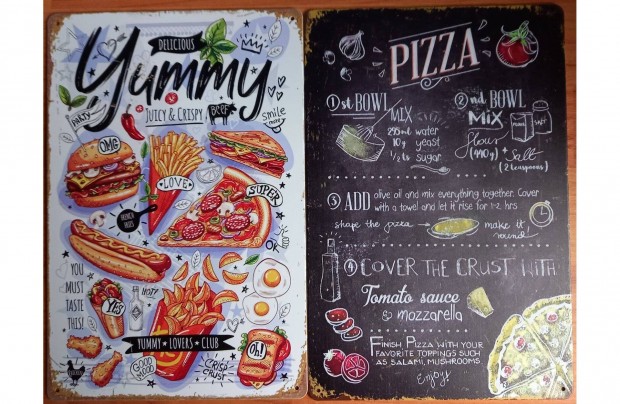 DELICIOUS
Yummy
& JUICY & CRISPY
BEEF
PARTY
smile
more
OMG
LOVE
SUPER
FRENCH
FRIES
OK
YOU
MUST
TASTE
THIS!
YES
HOT!
YUMMY ★ LOVERS ★ CLUB
Oh!
GOOD
MOOD
CRISP
CRUST
CHICKEN
PIZZA
1 st BOWL
MIX
295ml water
10g yeast
1/2 ts sugar
2 nd BOWL
MiX
flour
SALT
(440g) + Salt
(2 teaspoons)
3 ADD olive oil and mix everything together. Cover
with a towel and let it rise for 1-2 hrs
shape the pizza
make it
round
4 COVER THE CRUST WITH
Tomato sauce
& mozzarella
FINISH PIZZA WITH YOUR
FAVORITE TOPPINGS SUCH
AS SALAMI, MUSHROOMS
Enjoy!